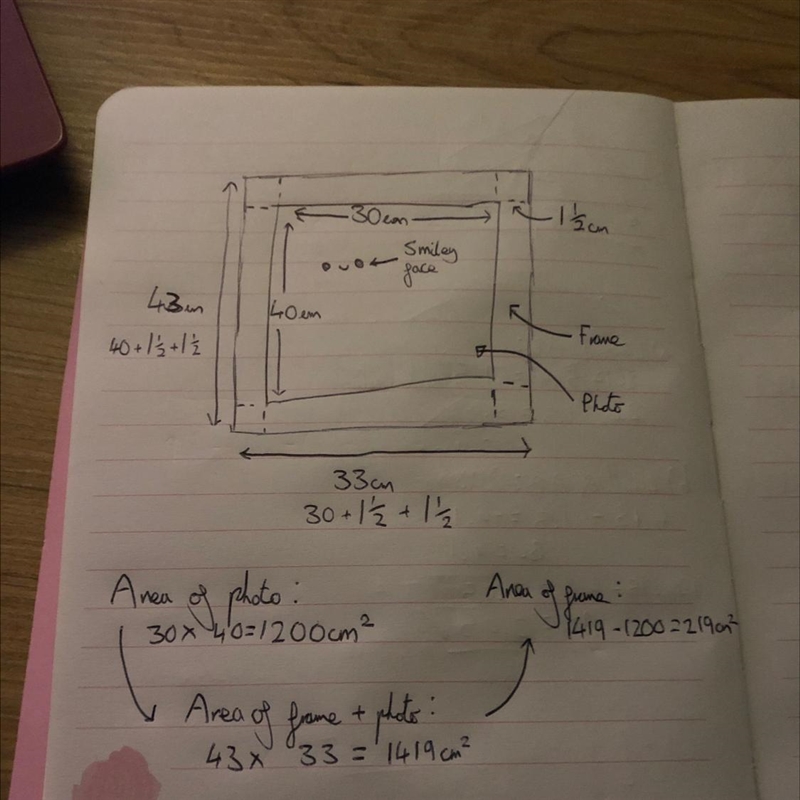 30cm
1 1/2 cm
Smiley
face
43cm
40cm
40 + 1 1/2 + 1 1/2
Frame
Photo
33cm
30 + 1 1/2 + 1 1/2
Area of photo:
30 × 40 = 1200cm²
Area of frame:
1419 - 1200 = 219cm²
Area of frame + photo:
43 × 33 = 1419cm²